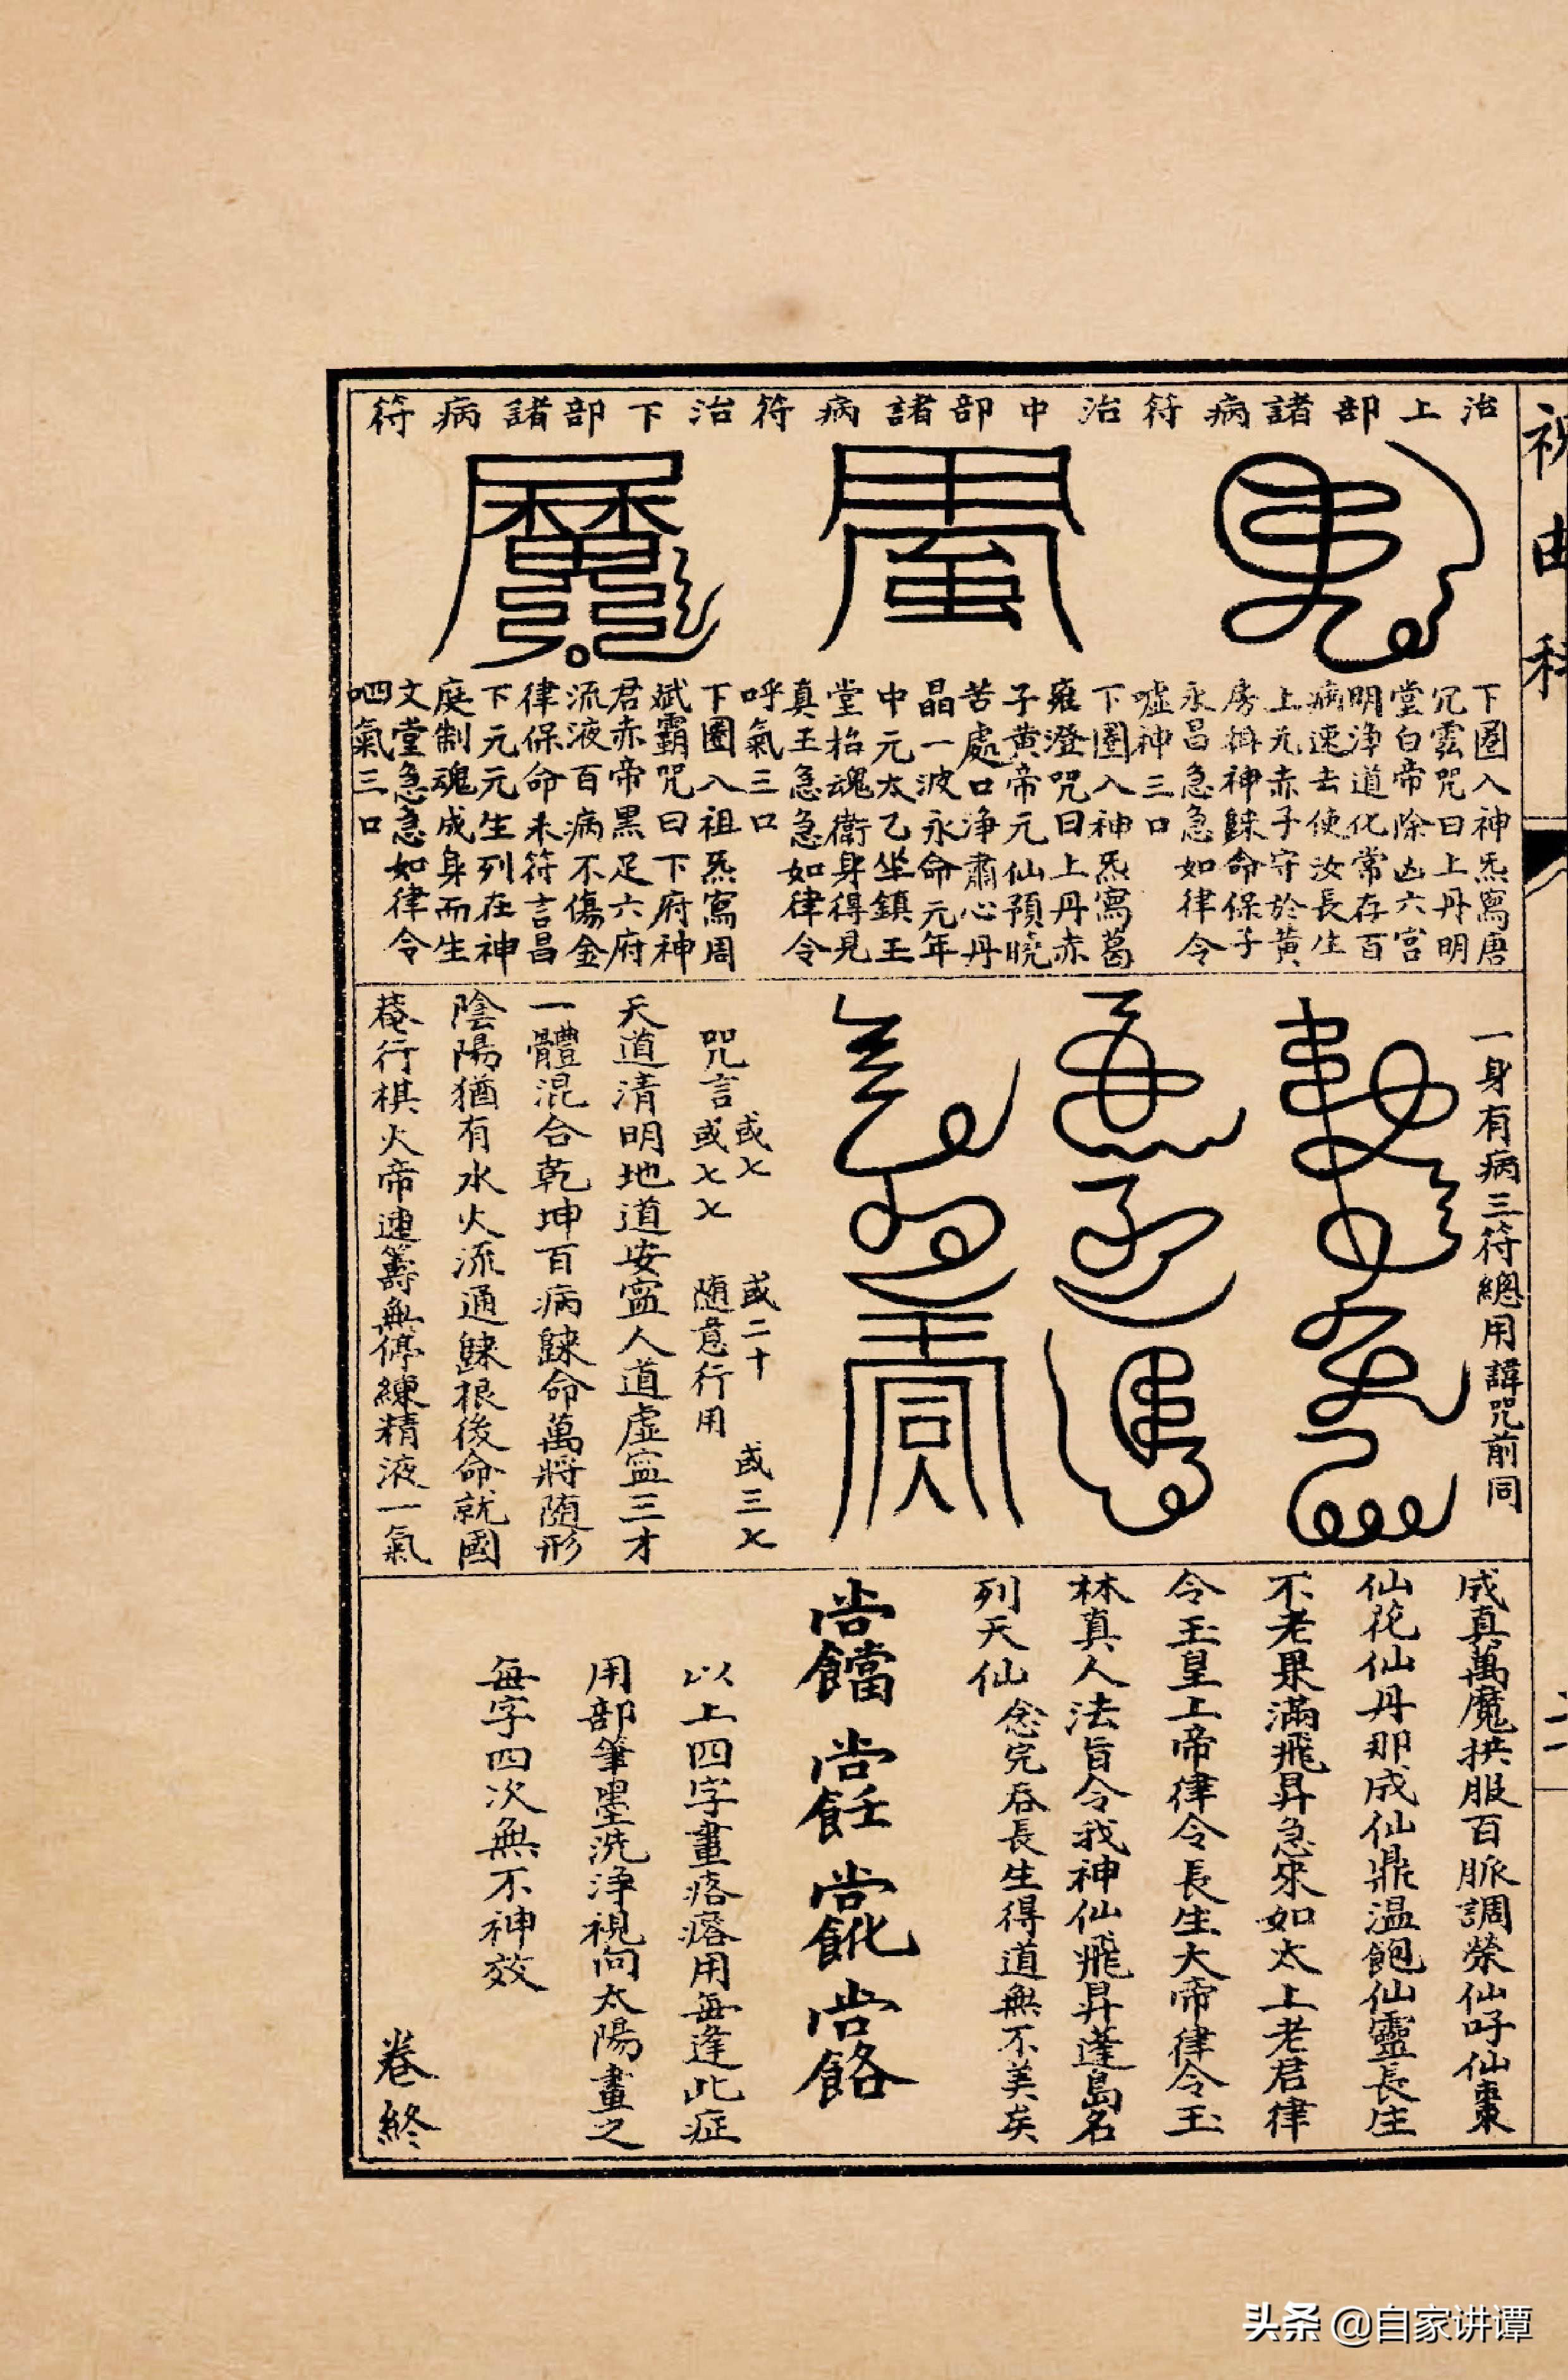 祝由科
治上部諸病符
治中部諸病符
治下部諸病符
下圈入神炁寫唐
冗雲咒曰上丹明
堂白帝除凶六宫
明淨道化常存百
病速去使汝長生
上元赤子守於黃
房揖神歸命保子
永昌急急如律令
噓神三口
下圈入神炁寫葛
雍澄咒曰上丹赤
子黃帝元仙預曉
苦處口淨肅心丹
晶一波永命元年
中元太乙坐鎮玉
堂招魂衛身得見
真王急急如律令
呼氣三口
下圈入祖炁寫周
斌霸咒曰下府神
君赤帝黑足六府
流液百病不傷金
律保命未符言昌
下元元生列在神
庭制魂成身而生
文堂急急如律令
呬氣三口
一身有病三符總用諱咒前同
咒言或七或七七或二十隨意行用或三七
天道清明地道安寍人道虛寍三才
一體混合乾坤百病歸命萬將隨形
陰陽猶有水火流通歸根後命就國
蓭行棋火帝連籌無停練精液一氣
成真萬魔拱服百脈調榮仙吁仙棗
仙花仙丹那成仙鼎温飽仙靈長生
不老果滿飛昇急來如太上老君律
令玉皇上帝律令長生大帝律令玉
林真人法旨令我神仙飛昇蓬島名
列天仙 念完吞長生得道無不美矣
以上四字畫痞瘩用每逢此症
用部筆墨洗淨視向太陽畫之
每字四次無不神效
卷終
头条 @自家讲谭